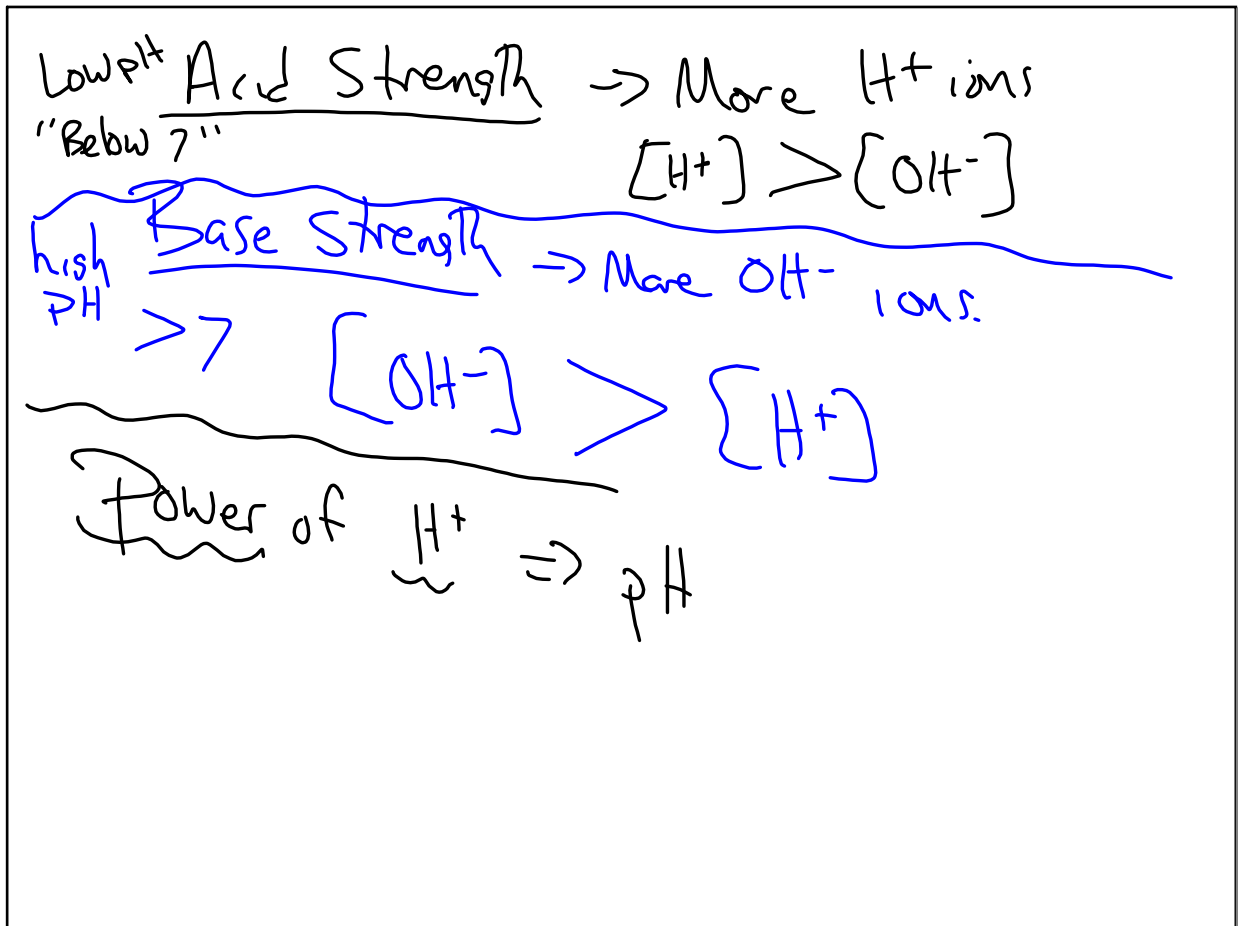 Low pH Acid Strength -> More H+ ions
"Below 7"
[H+] > [OH-]
high pH Base Strength -> More OH- ions.
>7 [OH-] > [H+]
Power of H+ => pH